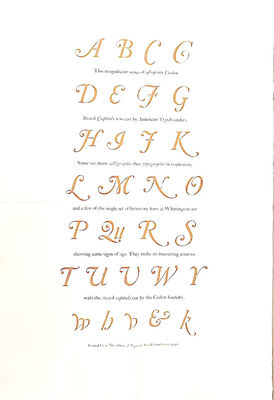 A B C G
This magnificent series of 48-point Caslon
D E F G
Swash Capitals was cast by American Typefounders.
H I J K
Some are more calligraphic than typographic in inspiration,
L M N O
and a few of the single set of letters we have at Whittington are
P Qu R S
showing some signs of age. They make an interesting contrast
T U U W Y
with the swash capitals cut by the Caslon foundry.
w h v & k
Printed for a